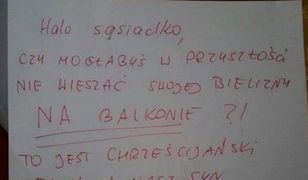 Halo sąsiadko,
CZY MOGŁABYŚ W PRZYSZŁOŚĆI
NIE WIESZAĆ SWOJEJ BIELIZNY
NA BALKONIE ?!
TO JEST CHRZEŚCIJAŃSKI
NASZ SYN